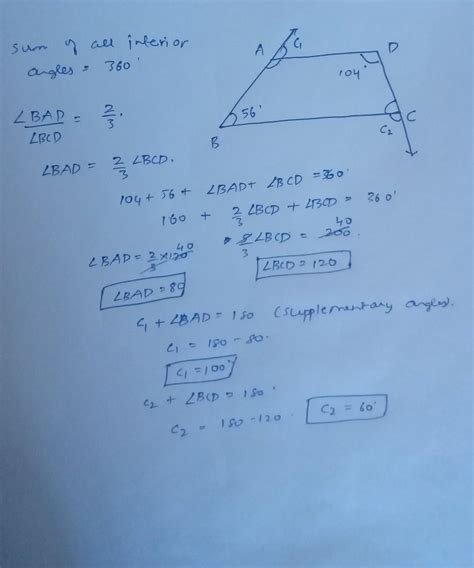 sum of all interior
angles = 360°
A C₁ D
104°
56°
B C
C₂
∠BAD/∠BCD = 2/3.
∠BAD = 2/3 ∠BCD.
104 + 56 + ∠BAD + ∠BCD = 360°
160 + 2/3 ∠BCD + ∠BCD = 360°
5/3 ∠BCD = 200. 40
∠BAD = 2 × 120/3 40
∠BCD = 120
∠BAD = 80
C₁ + ∠BAD = 180 (supplementary angles).
C₁ = 180 - 80.
C₁ = 100°
C₂ + ∠BCD = 180°
C₂ = 180 - 120. C₂ = 60°